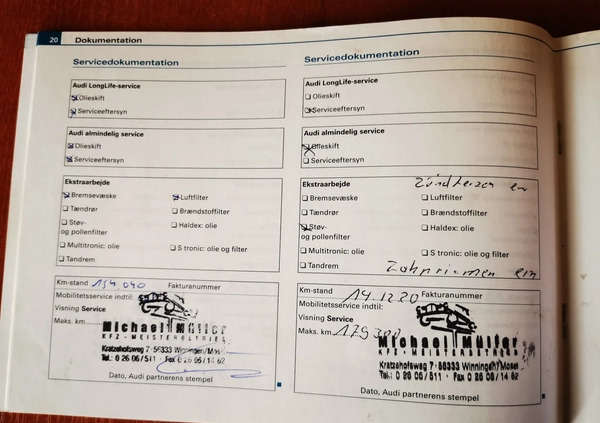 20 Dokumentation
Servicedokumentation
Audi LongLife-service
Olieskift
Serviceeftersyn
Audi almindelig service
Olieskift
Serviceeftersyn
Ekstraarbejde
Bremsevæske
Luftfilter
Tændrør
Brændstoffilter
Støv-
og pollenfilter
Haldex: olie
Multitronic: olie
S tronic: olie og filter
Tandrem
Km-stand 154 040 Fakturanummer
Mobilitetsservice indtil:
Visning Service
Maks. km
Michael Müller
KFZ-MEISTERBETRIEB
Kratzehofsweg 7 · 56333 Winningen/Mosel
Tel.: 0 26 06/511 · Fax 0 26 06/14 62
Dato, Audi partnerens stempel
Servicedokumentation
Audi LongLife-service
Olieskift
Serviceeftersyn
Audi almindelig service
Olieskift
Serviceeftersyn
Ekstraarbejde
Bremsevæske
Luftfilter
Tændrør
Brændstoffilter
Støv-
og pollenfilter
Haldex: olie
Multitronic: olie
S tronic: olie og filter
Tandrem
Zahnriemen
Km-stand
Fakturanummer
14.12.20
Mobilitetsservice indtil:
Visning Service
Maks. km 179 300
Michael Müller
KFZ-MEISTERBETRIEB
Kratzehofsweg 7 · 56333 Winningen/Mosel
Tel.: 0 26 06/511 · Fax 0 26 06/14 62
Dato, Audi partnerens stempel